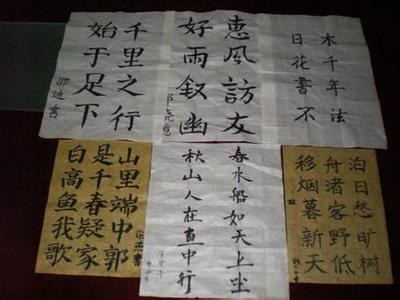 千里之行
始于足下
惠風訪友
好雨叙幽
木千年法
日花書不
山里端中郭
是千春疑家
白高鱼我歌
春水船如天上坐
秋山人在畫中行
泊日愁旷树
舟渚客野低
移烟暮新天